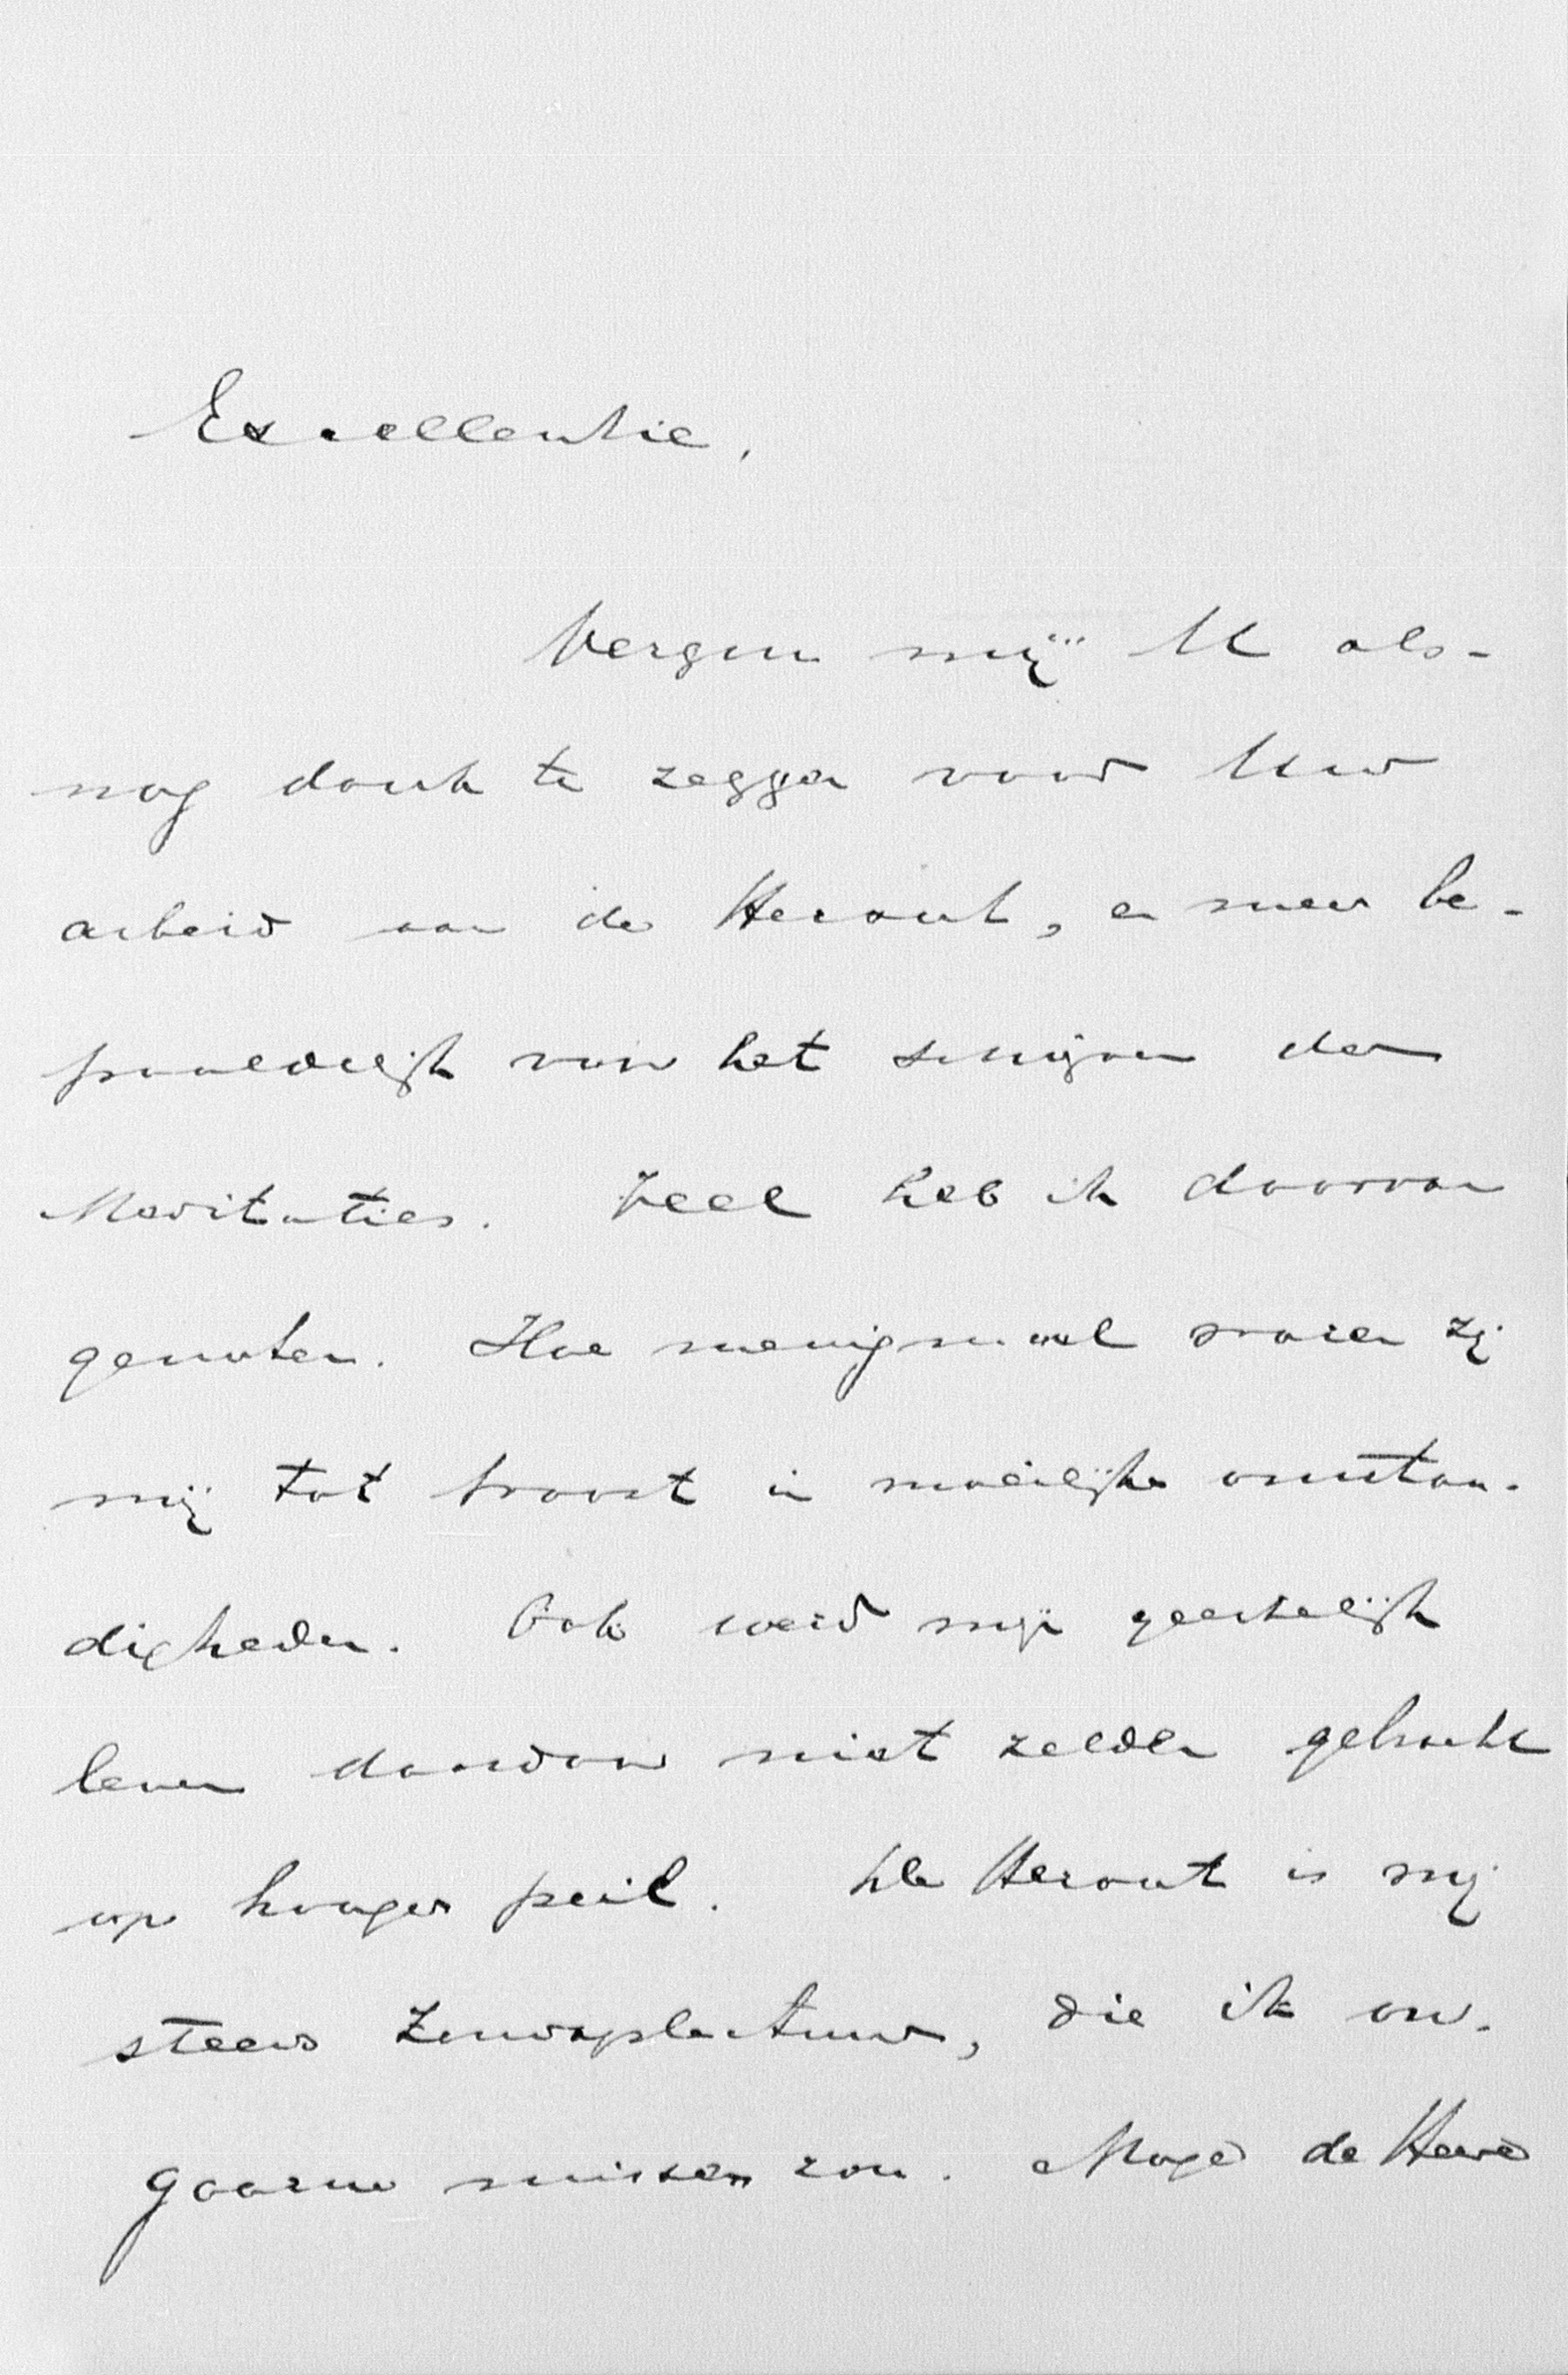 Excellentie,
Vergun mij U als-
nog dank te zeggen voor Uw
arbeid aan de Heraut, en meer be-
paaldelijk voor het schrijven der
Meditaties. Veel heb ik daarvan
genoten. Hoe menigmaal waren zij
mij tot troost in moeilijke omstan-
digheden. Ook werd mijn geestelijk
leven daardoor niet zelden gebracht
op hooger peil. De Heraut is mij
steeds Zondagslectuur, die ik on-
gaarne missen zou. Moge de Heere